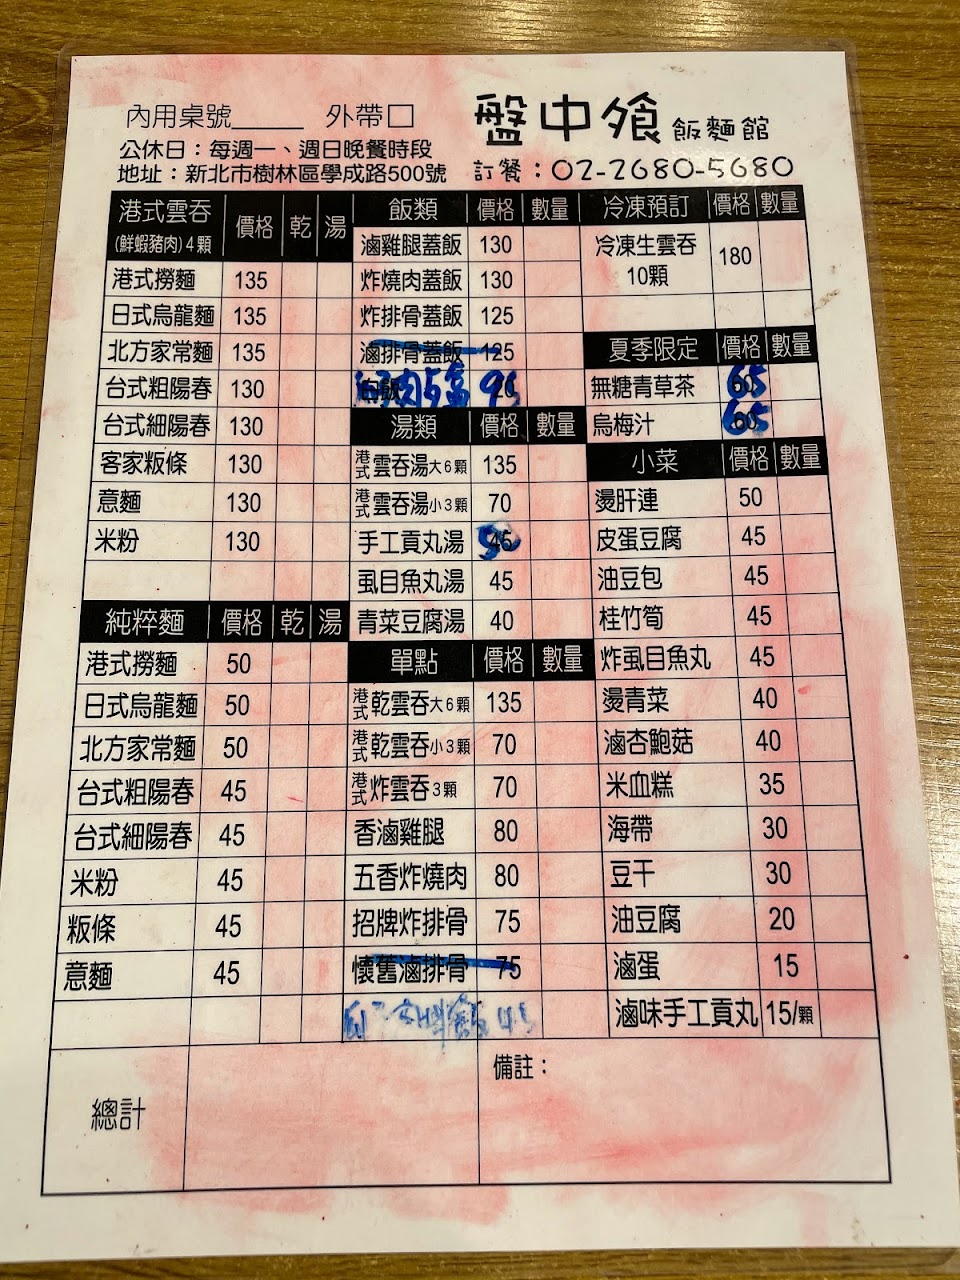 內用桌號_____ 外帶□
盤中飧飯麵館
公休日：每週一、週日晚餐時段
地址：新北市樹林區學成路500號
訂餐：02-2680-5680
港式雲吞 (鮮蝦豬肉)4顆 價格 乾 湯
港式撈麵 135
日式烏龍麵 135
北方家常麵 135
台式粗陽春 130
台式細陽春 130
客家粄條 130
意麵 130
米粉 130
純粹麵 價格 乾 湯
港式撈麵 50
日式烏龍麵 50
北方家常麵 50
台式粗陽春 45
台式細陽春 45
米粉 45
粄條 45
意麵 45
飯類 價格 數量
滷雞腿蓋飯 130
炸燒肉蓋飯 130
炸排骨蓋飯 125
滷排骨蓋飯 125
白飯 20
湯類 價格 數量
港式雲吞湯大6顆 135
港式雲吞湯小3顆 70
手工貢丸湯 45 50
虱目魚丸湯 45
青菜豆腐湯 40
單點 價格 數量
港式乾雲吞大6顆 135
港式乾雲吞小3顆 70
港式炸雲吞3顆 70
香滷雞腿 80
五香炸燒肉 80
招牌炸排骨 75
懷舊滷排骨 75
冷凍預訂 價格 數量
冷凍生雲吞 180
10顆
夏季限定 價格 數量
無糖青草茶 60 65
烏梅汁 60 65
小菜 價格 數量
燙肝連 50
皮蛋豆腐 45
油豆包 45
桂竹筍 45
炸虱目魚丸 45
燙青菜 40
滷杏鮑菇 40
米血糕 35
海帶 30
豆干 30
油豆腐 20
滷蛋 15
滷味手工貢丸 15/顆
總計
備註：